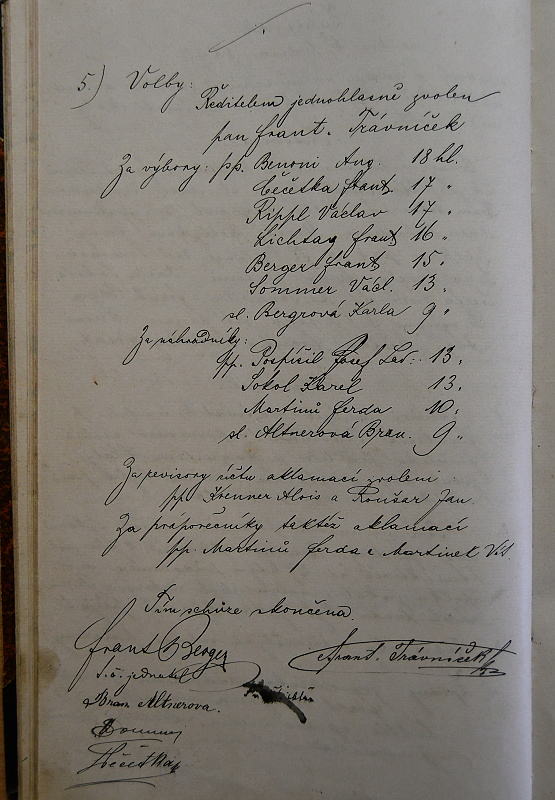 5.) Volby:
Ředitelem jednohlasně zvolen
pan Frant. Trávníček
Za výbory: pp. Benoni Aug. 18 hl.
Čečetka Frant. 17 "
Rippl Václav 17 "
Lichtag Frant 16 "
Berger Frant 15 "
Sommer Václ. 13 "
sl. Bergrová Karla 9 "
Za náhradníky:
pp. Pospíšil Josef Lad: 13 "
Sokol Karel 13 "
Martinů Ferda 10 "
sl. Altnerová Bran. 9 "
Za revisory účtu aklamací zvoleni
pp. Krenner Alois a Roušar Jan.
Za práporečníky taktéž aklamací
pp. Martinů Ferda a Martinek Vil.
Tím schůze skončena.
Frant Berger
t. č. jednatel
Frant. Trávníček
Bran. Altnerova.
Sommer
Čečetka